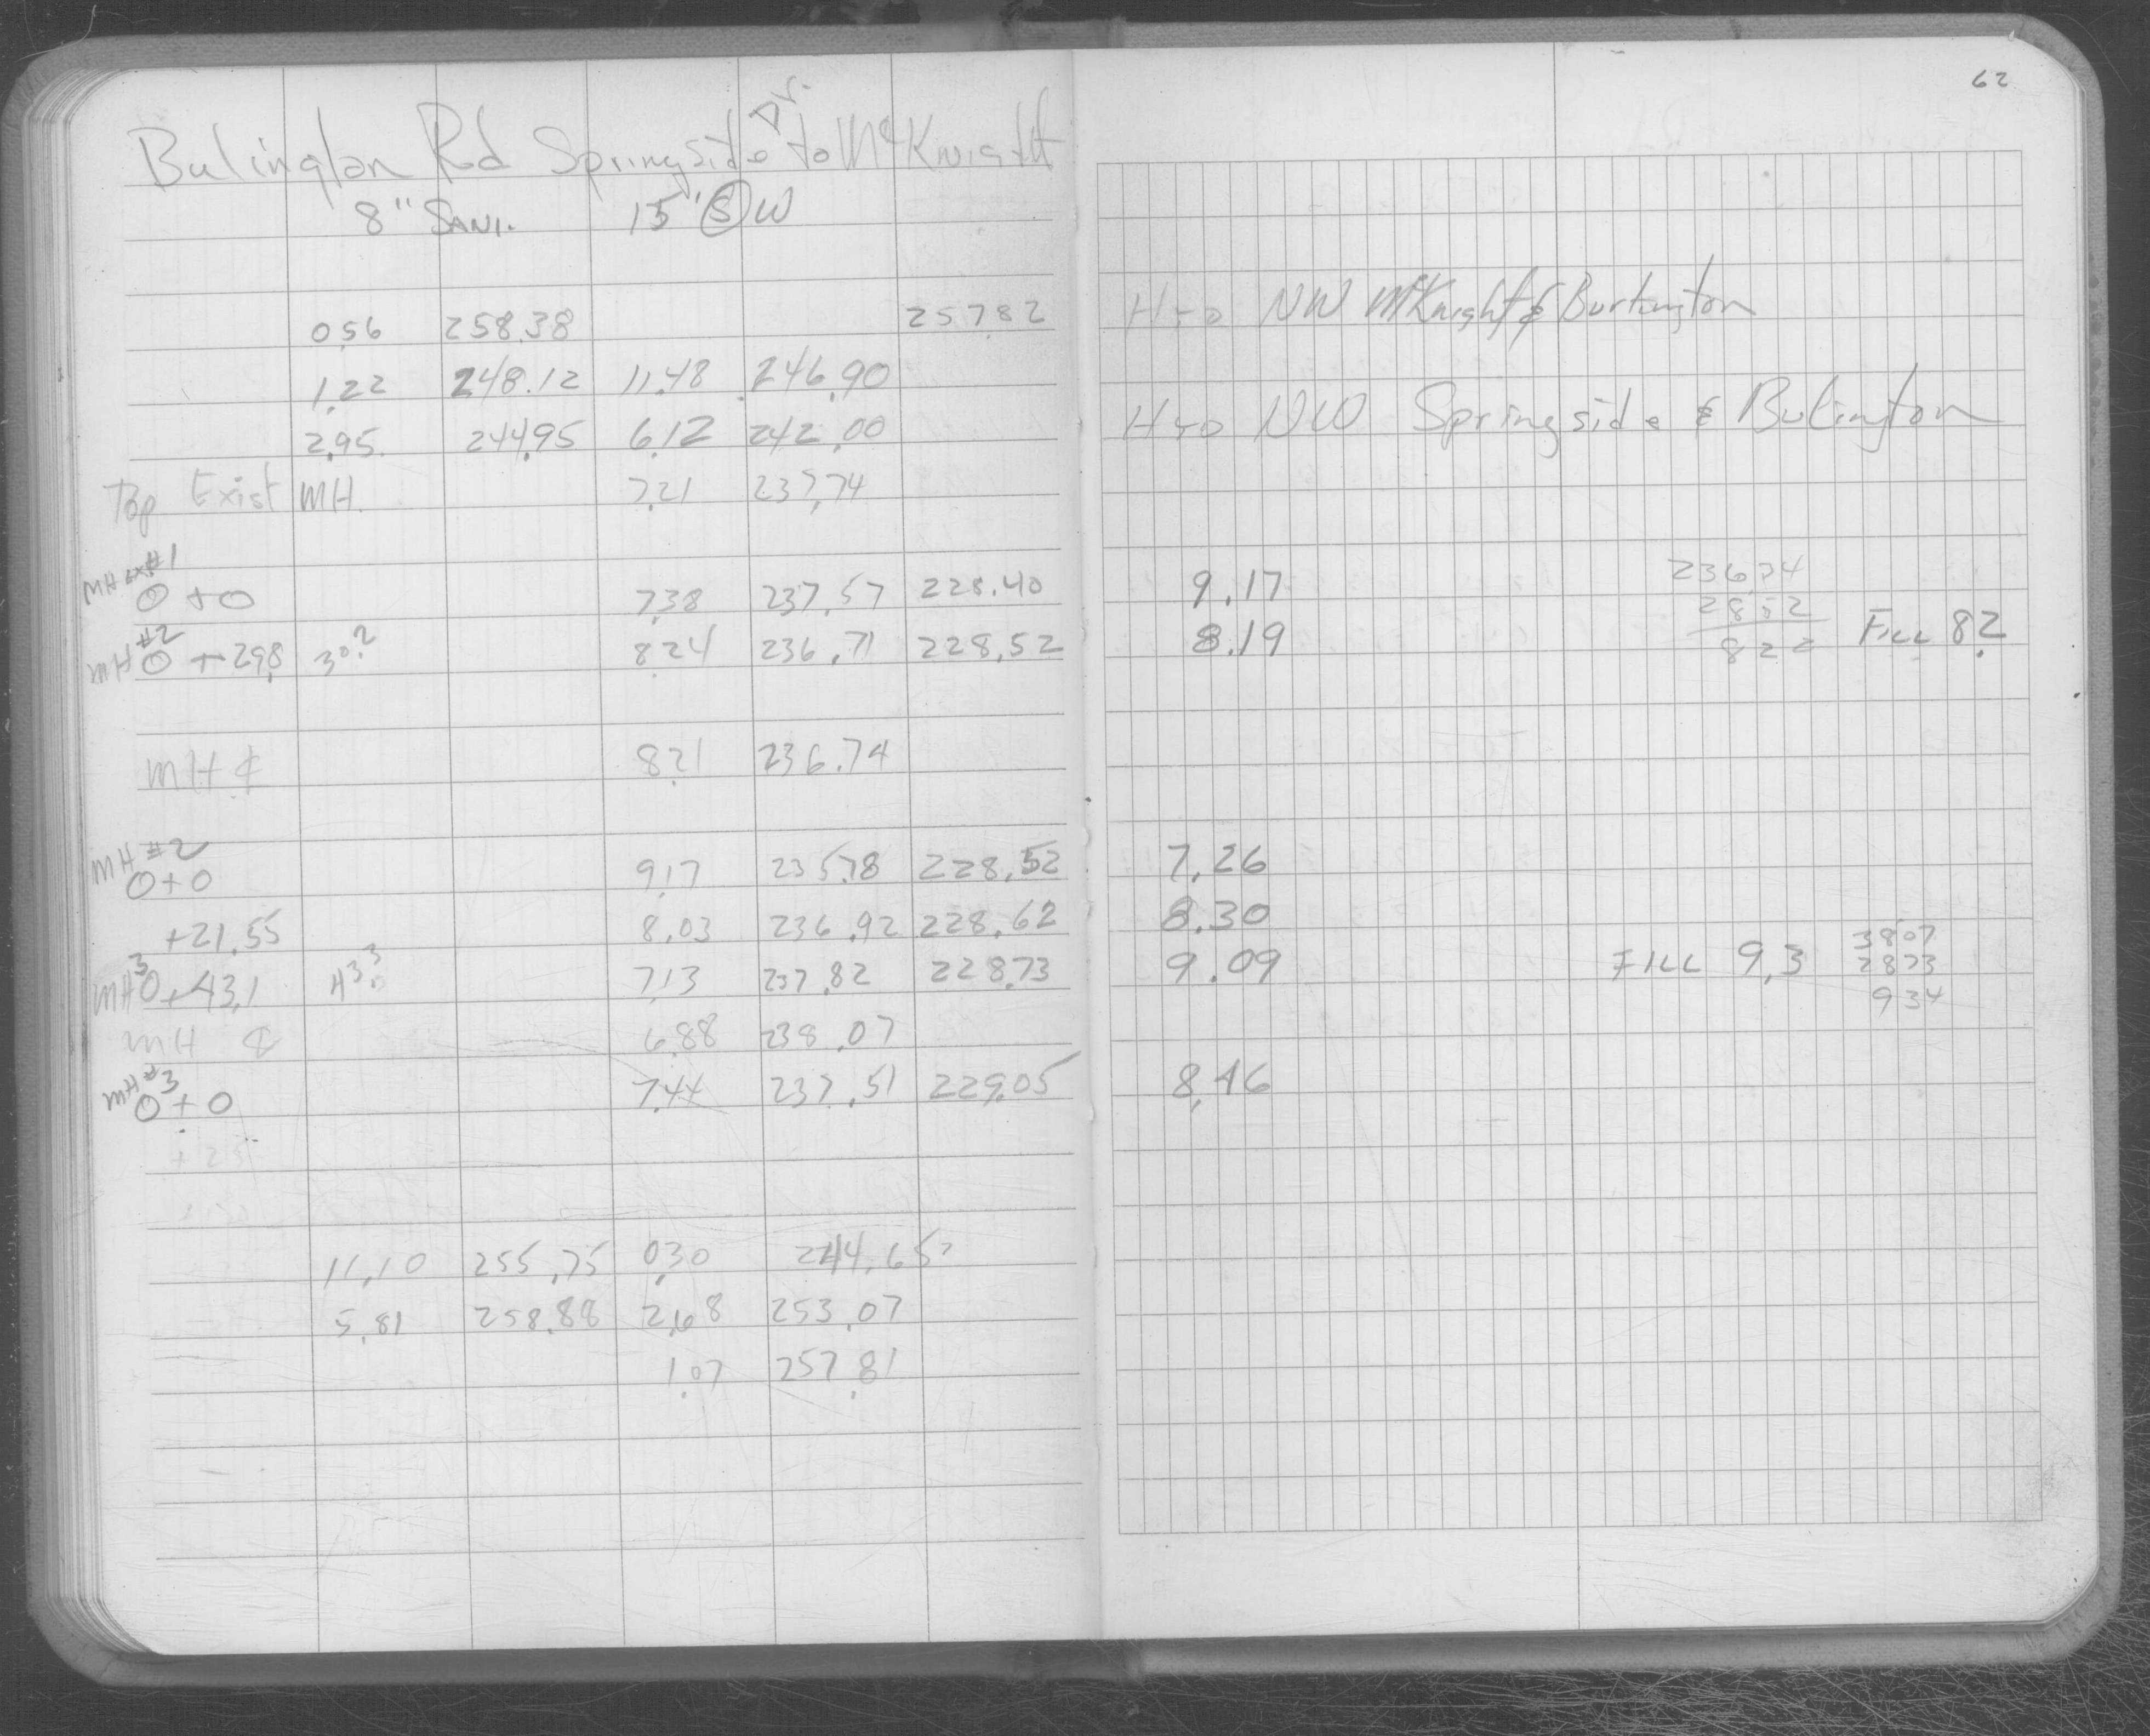 62
Bulington Rd Springside Dr. to McKnight
8" SANI. 15" S W
0.56 258.38 257.82 Hyd NW McKnight & Burlington
1.22 248.12 11.48 246.90
2.95 244.95 6.12 242.00 Hyd NW Springside & Bulington
Top Exist MH 7.21 237.74
MH ex #1
0+0 7.38 237.57 228.40 9.17 236.74
MH #2 28.52
0+29.8 30.2 8.24 236.71 228.52 8.19 822 FILL 8.2
MH ¢ 8.21 236.74
MH #2
0+0 9.17 235.78 228.52 7.26
+21.55 8.03 236.92 228.62 8.30 3807
MH 3 0+43.1 7.13 237.82 228.73 9.09 FILL 9.3 2873
934
MH ¢ 6.88 238.07
MH #3
0+0 7.44 237.51 229.05 8.46
+25
11.10 255.75 0.30 244.65
5.81 258.88 2.68 253.07
1.07 257.81